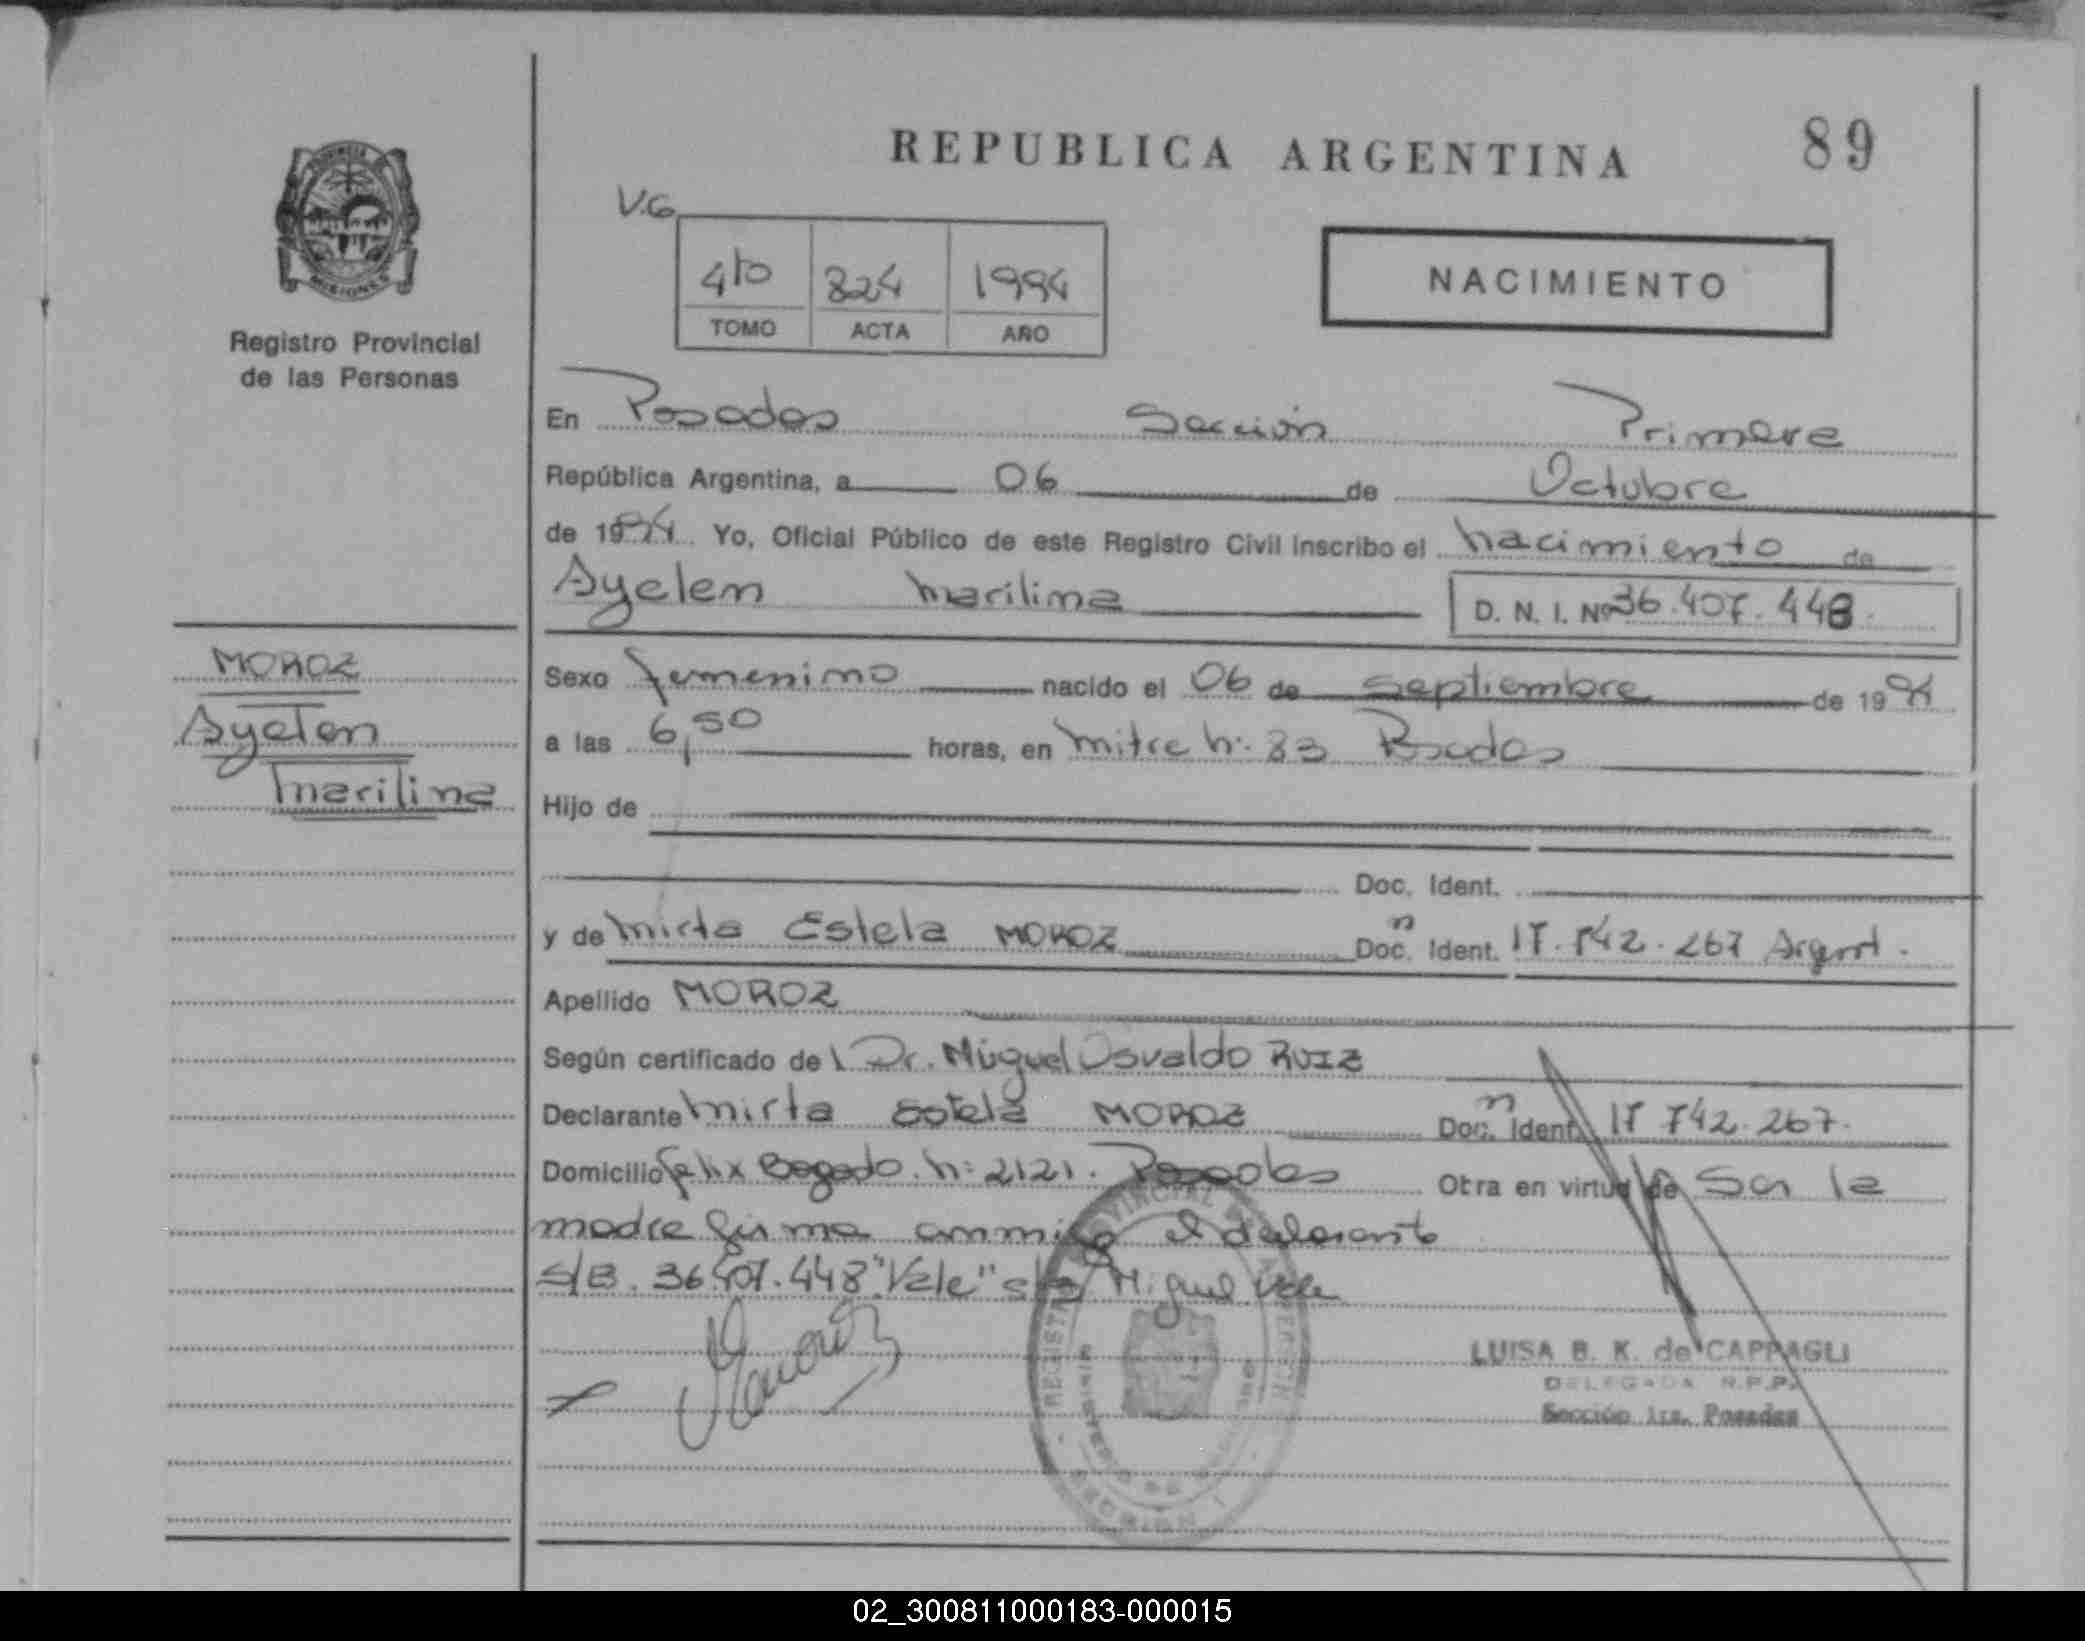 REPUBLICA ARGENTINA
89
V.G.
4to 824 1994
TOMO ACTA AÑO
NACIMIENTO
Registro Provincial
de las Personas
En Posadas Sección Primera
República Argentina, a 06 de Octubre
de 1994 Yo, Oficial Público de este Registro Civil inscribo el nacimiento de
Ayelen Marilina D. N. I. Nº 36.407.448
MOROZ
Ayelen
Marilina
Sexo femenino nacido el 06 de Septiembre de 1994
a las 6,50 horas, en Mitre n: 83 Posadas
Hijo de
Doc. Ident.
y de Mirta Estela MOROZ Doc. Ident. 17.742.267 Argent.
Apellido MOROZ
Según certificado del Dr. Miguel Osvaldo RUIZ
Declarante Mirta Estela MOROZ Doc. Ident. 17 742.267.
Domicilio Felix Bogado n: 2121. Posadas Otra en virtud de Ser la
madre firma conmigo el declarante
S/B. 36.407.448 "Vale" Miguel Vale
LUISA B. K. de CAPPAGLI
DELEGADA R.P.P.
Sección 1ra. Posadas
REGISTRO PROVINCIAL DE LAS PERSONAS
MINISTERIO DE
SECCION 1
MISIONES
02_300811000183-000015